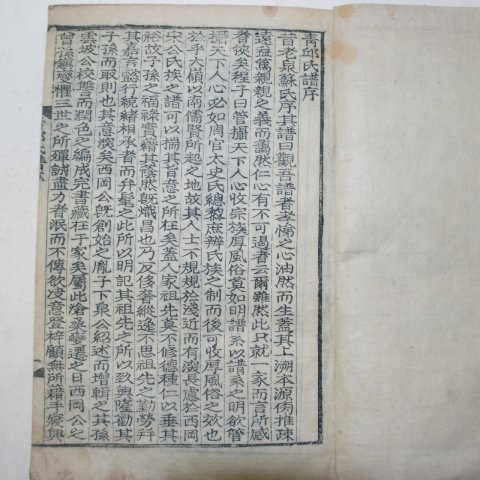 青邱氏譜序
昔老泉蘇氏序其譜曰觀吾譜者孝悌之心油然而生蓋其上溯本源傍推疎
遠益篤親親之義而藹然仁心有不可遏者云爾雖然此只就一家而言所感
者狹矣程子曰管攝天下人心收宗族厚風俗莫如明譜系以譜系之明欲管
攝天下人心必如周官太史氏總蔡庶辨氏族之制而後可收厚風俗之效也
於乎大嶺以南儒賢所起之地故其人士不規規於淺近而有深長慮於西岡
宋公氏族之譜可以揣其旨意之所在矣蓋人家祖先莫不修德種仁以垂其
裕故子孫之福祿實藉其蔭然旣熾昌也乃反侈奢縱逸不思祖先之勤勞幷
其嘉言懿行統緖相承者而弁髦之此所以明記其祖先之所以致興隆勸其
子孫而取則也其意深矣西岡公旣創始之胤子下泉公紹述而增輯之其孫
圭坡公校讐而潤色之編成完書藏在于家矣屬此滄桑變遷之日西岡公之
曾孫鎭 懼三世之所殫誠盡力者泯而不傳欲凌意登梓顧無所藉手寢興